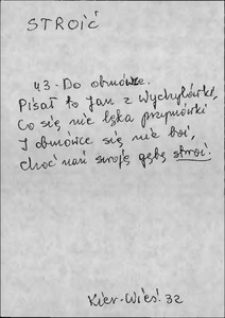 STROIĆ
43. Do obmówce.
Pisał to Jan z Wychylówki,
Co się nie lęka przymówki
I obmówce się nie boi,
choć nań swoję gębę stroi.
Kier-Wieś. 32